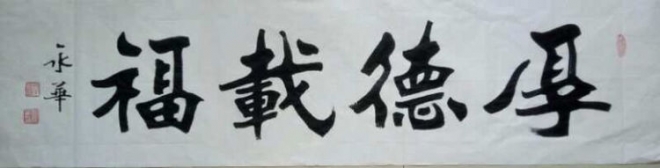 厚德載福
永華